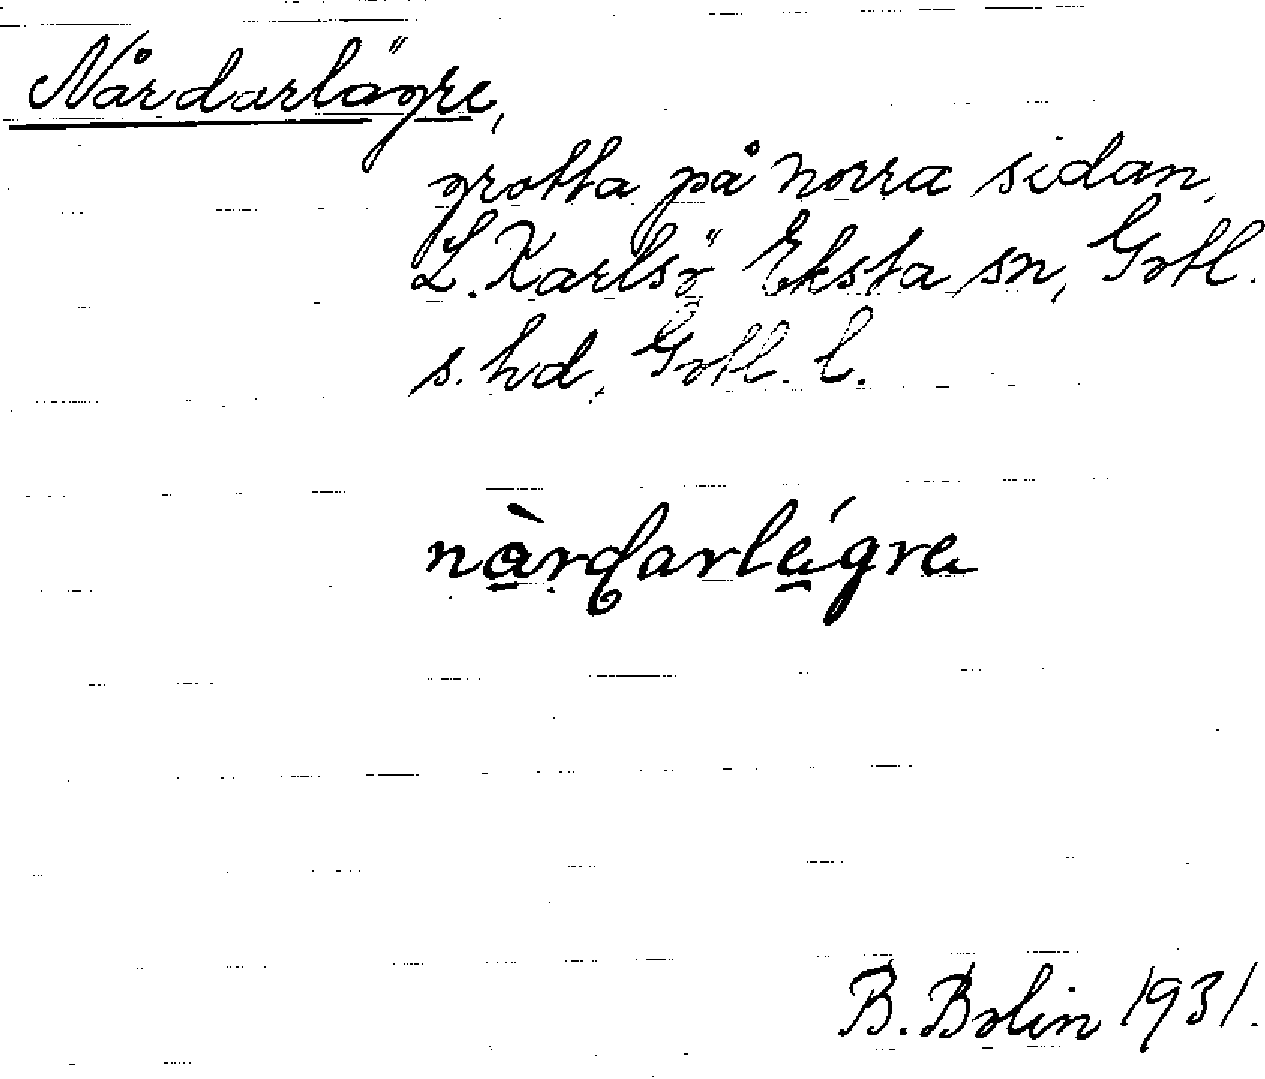 Nårdarlägre,
grotta på norra sidan,
L. Karlsö, Eksta sn, Gotl.
s. hd, Gotl. l.
nàrdarlégre
B. Bolin 1931.